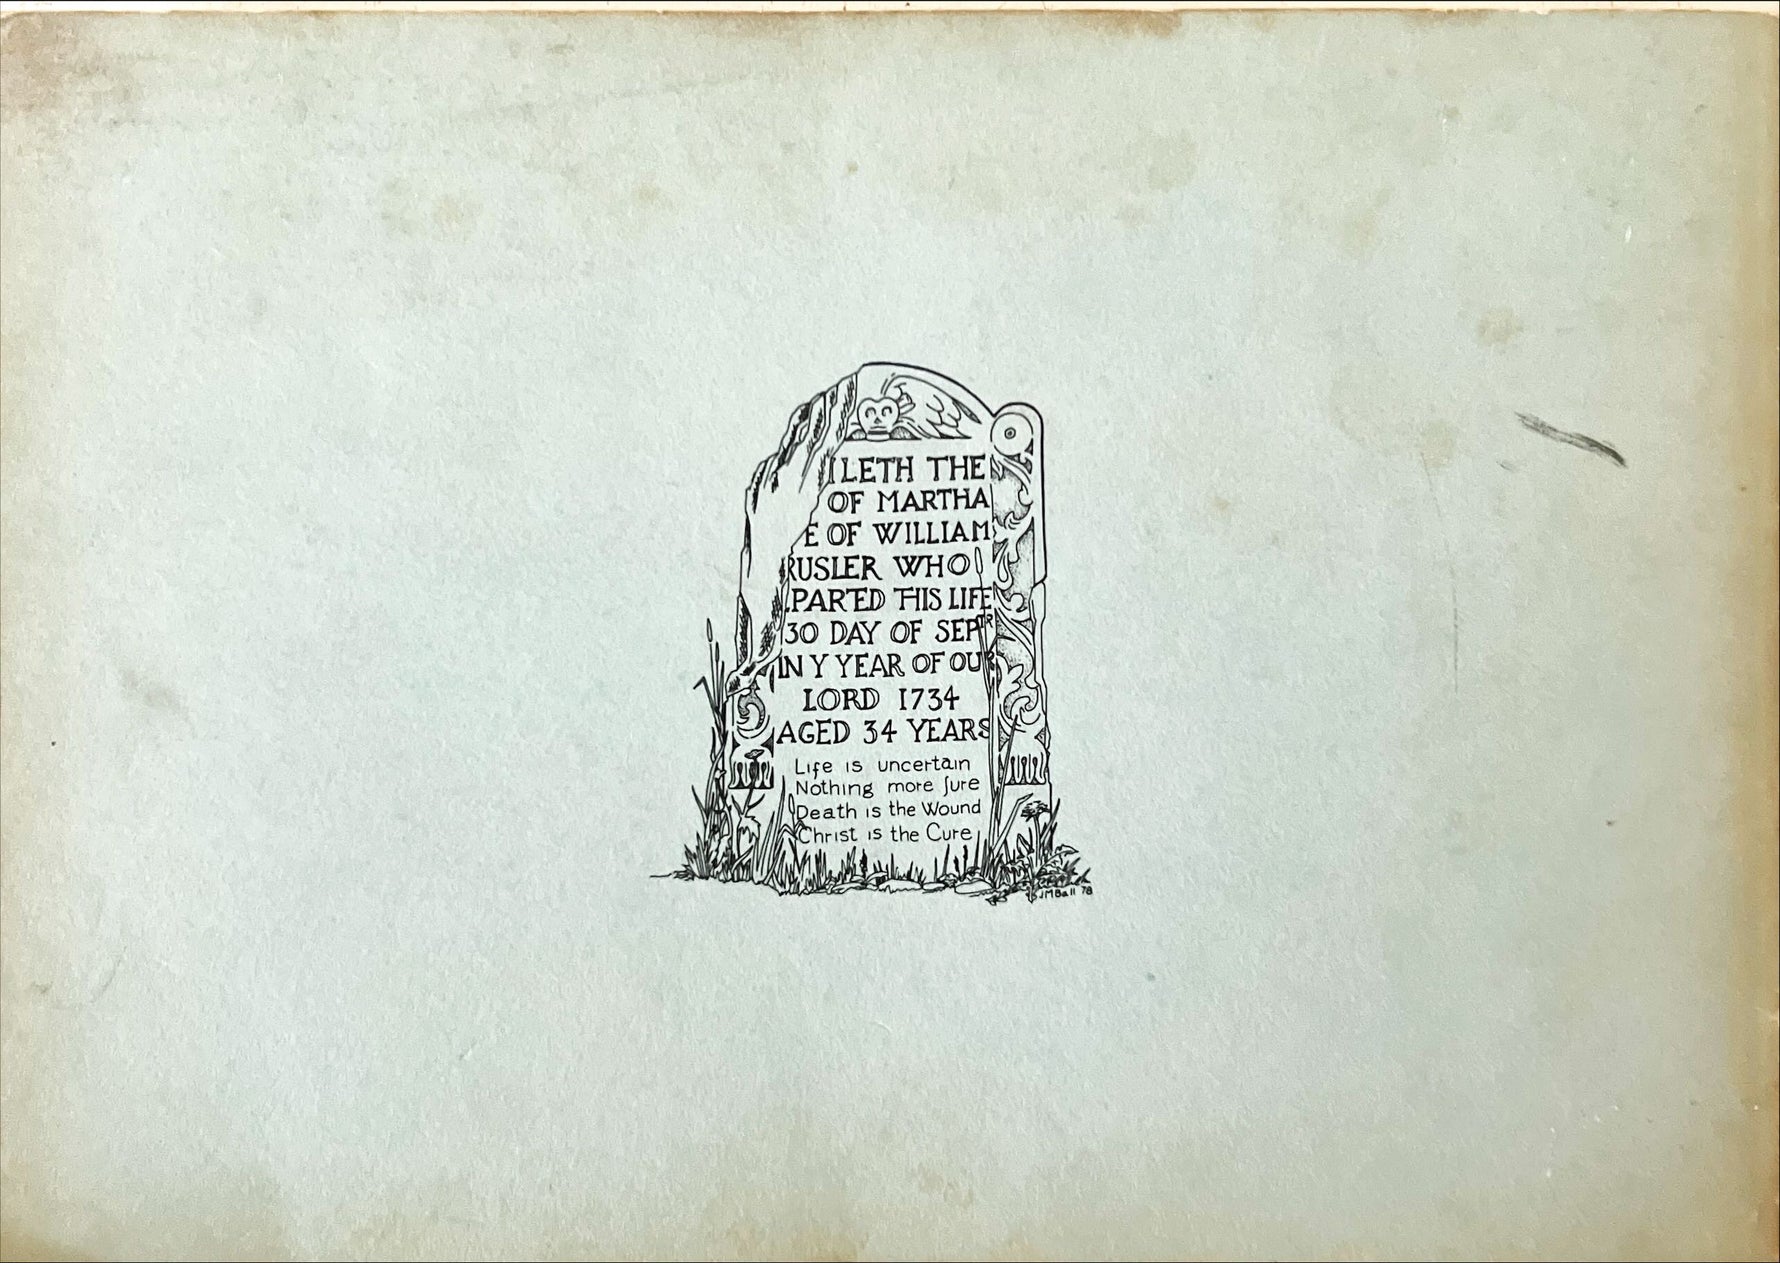 ILETH THE
OF MARTHA
E OF WILLIAM
RUSLER WHO
PARTED THIS LIFE
30 DAY OF SEPTR
IN Y YEAR OF OUR
LORD 1734
AGED 34 YEARS
Life is uncertain
Nothing more ſure
Death is the Wound
Christ is the Cure
JMBall 78